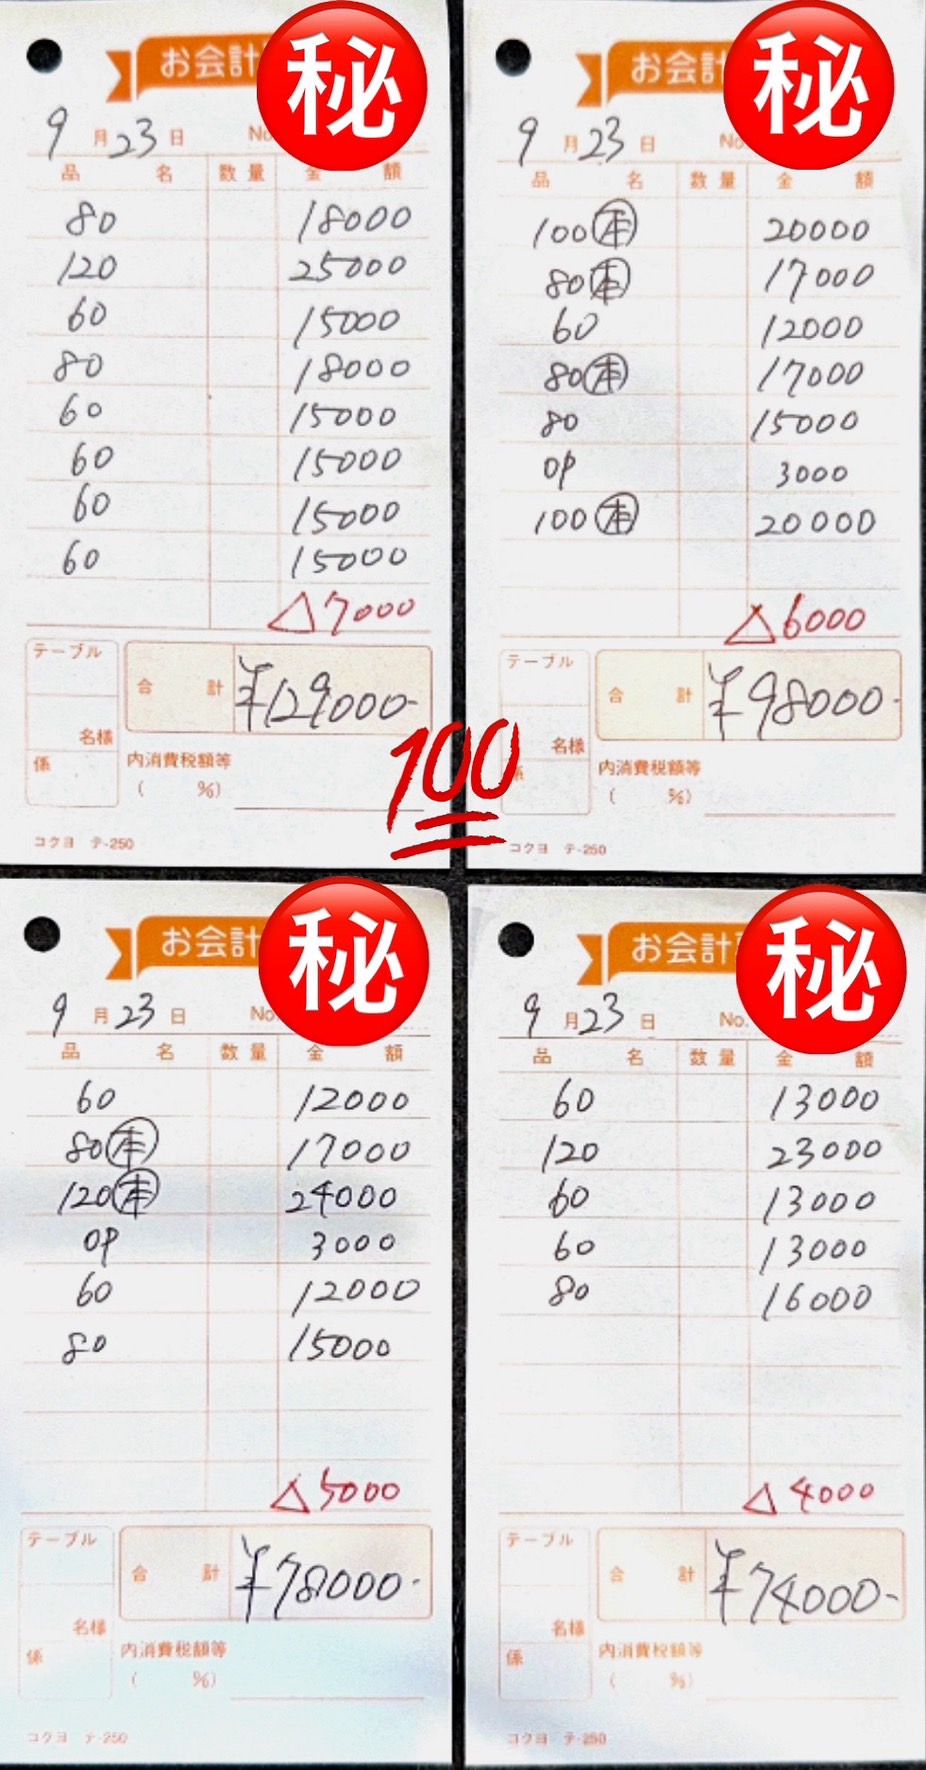 お会計
㊙
9月23日 No.
品名 数量 金額
80 18000
120 25000
60 15000
80 18000
60 15000
60 15000
60 15000
60 15000
△7000
テーブル
名様
係
合計 ¥129000-
内消費税額等
( %)
コクヨ テ-250
お会計
㊙
9月23日 No.
品名 数量 金額
100㊍ 20000
80㊍ 17000
60 12000
80㊍ 17000
80 15000
OP 3000
100㊍ 20000
△6000
テーブル
名様
係
合計 ¥98000-
内消費税額等
( %)
コクヨ テ-250
100
お会計
㊙
9月23日 No.
品名 数量 金額
60 12000
80本 17000
120本 24000
OP 3000
60 12000
80 15000
△5000
テーブル
名様
係
合計 ¥78000-
内消費税額等
( %)
コクヨ テ-250
お会計
㊙
9月23日 No.
品名 数量 金額
60 13000
120 23000
60 13000
60 13000
80 16000
△4000
テーブル
名様
係
合計 ¥74000-
内消費税額等
( %)
コクヨ テ-250